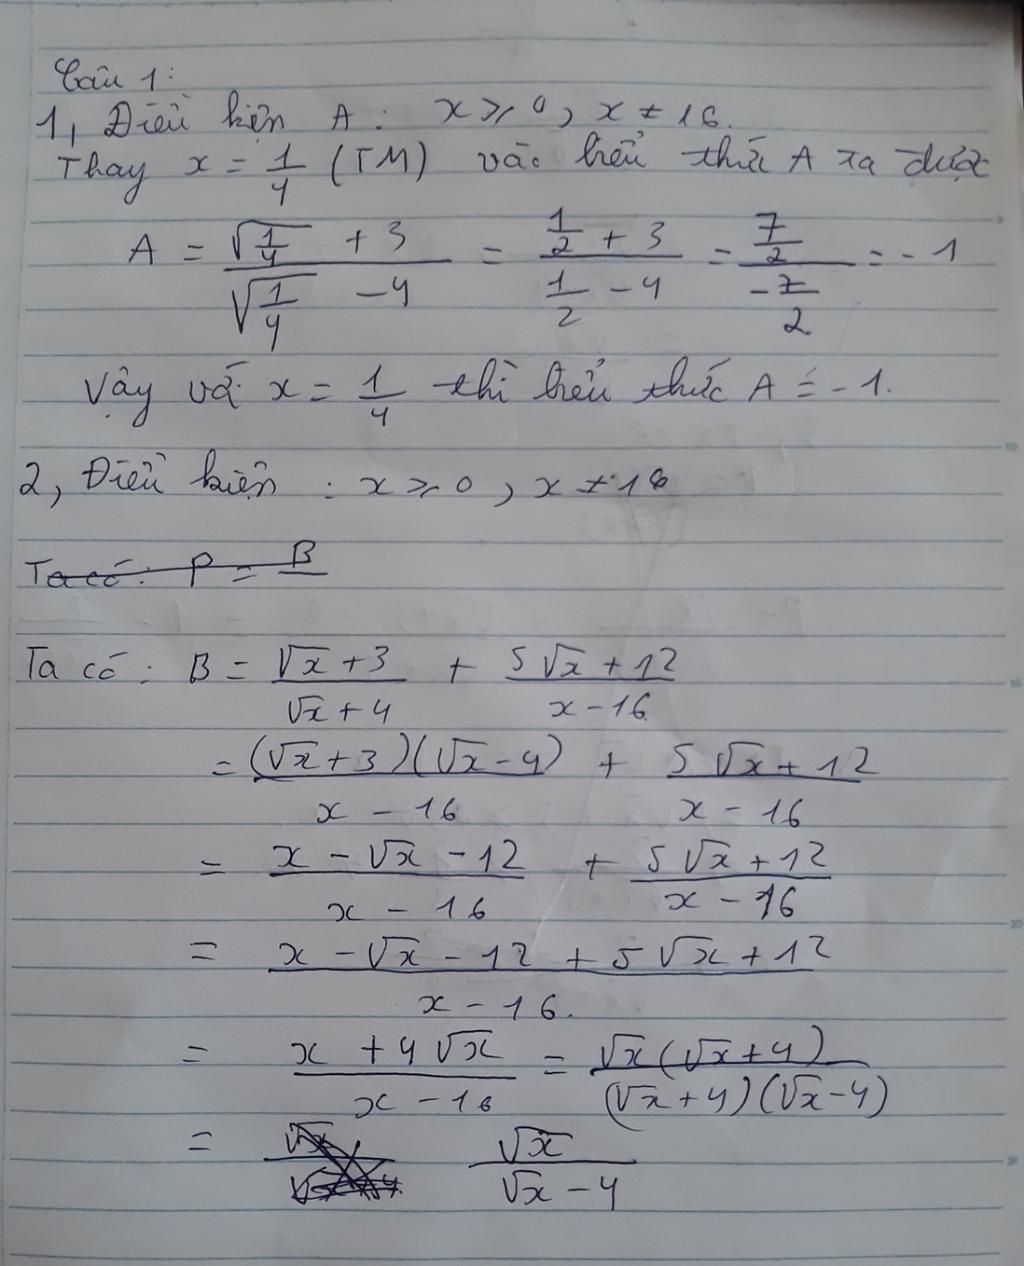 Câu 1:
1, Điều kiện A: x ≥ 0, x ≠ 16.
Thay x = 1/4 (TM) vào biểu thức A ta được
A = (√(1/4) + 3)/(√(1/4) - 4) = (1/2 + 3)/(1/2 - 4) = (7/2)/(-7/2) = -1
Vậy với x = 1/4 thì biểu thức A = -1.
2, Điều kiện : x ≥ 0, x ≠ 16
Ta có: P = B
Ta có: B = (√x + 3)/(√x + 4) + (5√x + 12)/(x - 16)
= ((√x + 3)(√x - 4))/(x - 16) + (5√x + 12)/(x - 16)
= (x - √x - 12)/(x - 16) + (5√x + 12)/(x - 16)
= (x - √x - 12 + 5√x + 12)/(x - 16)
= (x + 4√x)/(x - 16) = (√x(√x + 4))/((√x + 4)(√x - 4))
= √x/(√x - 4)